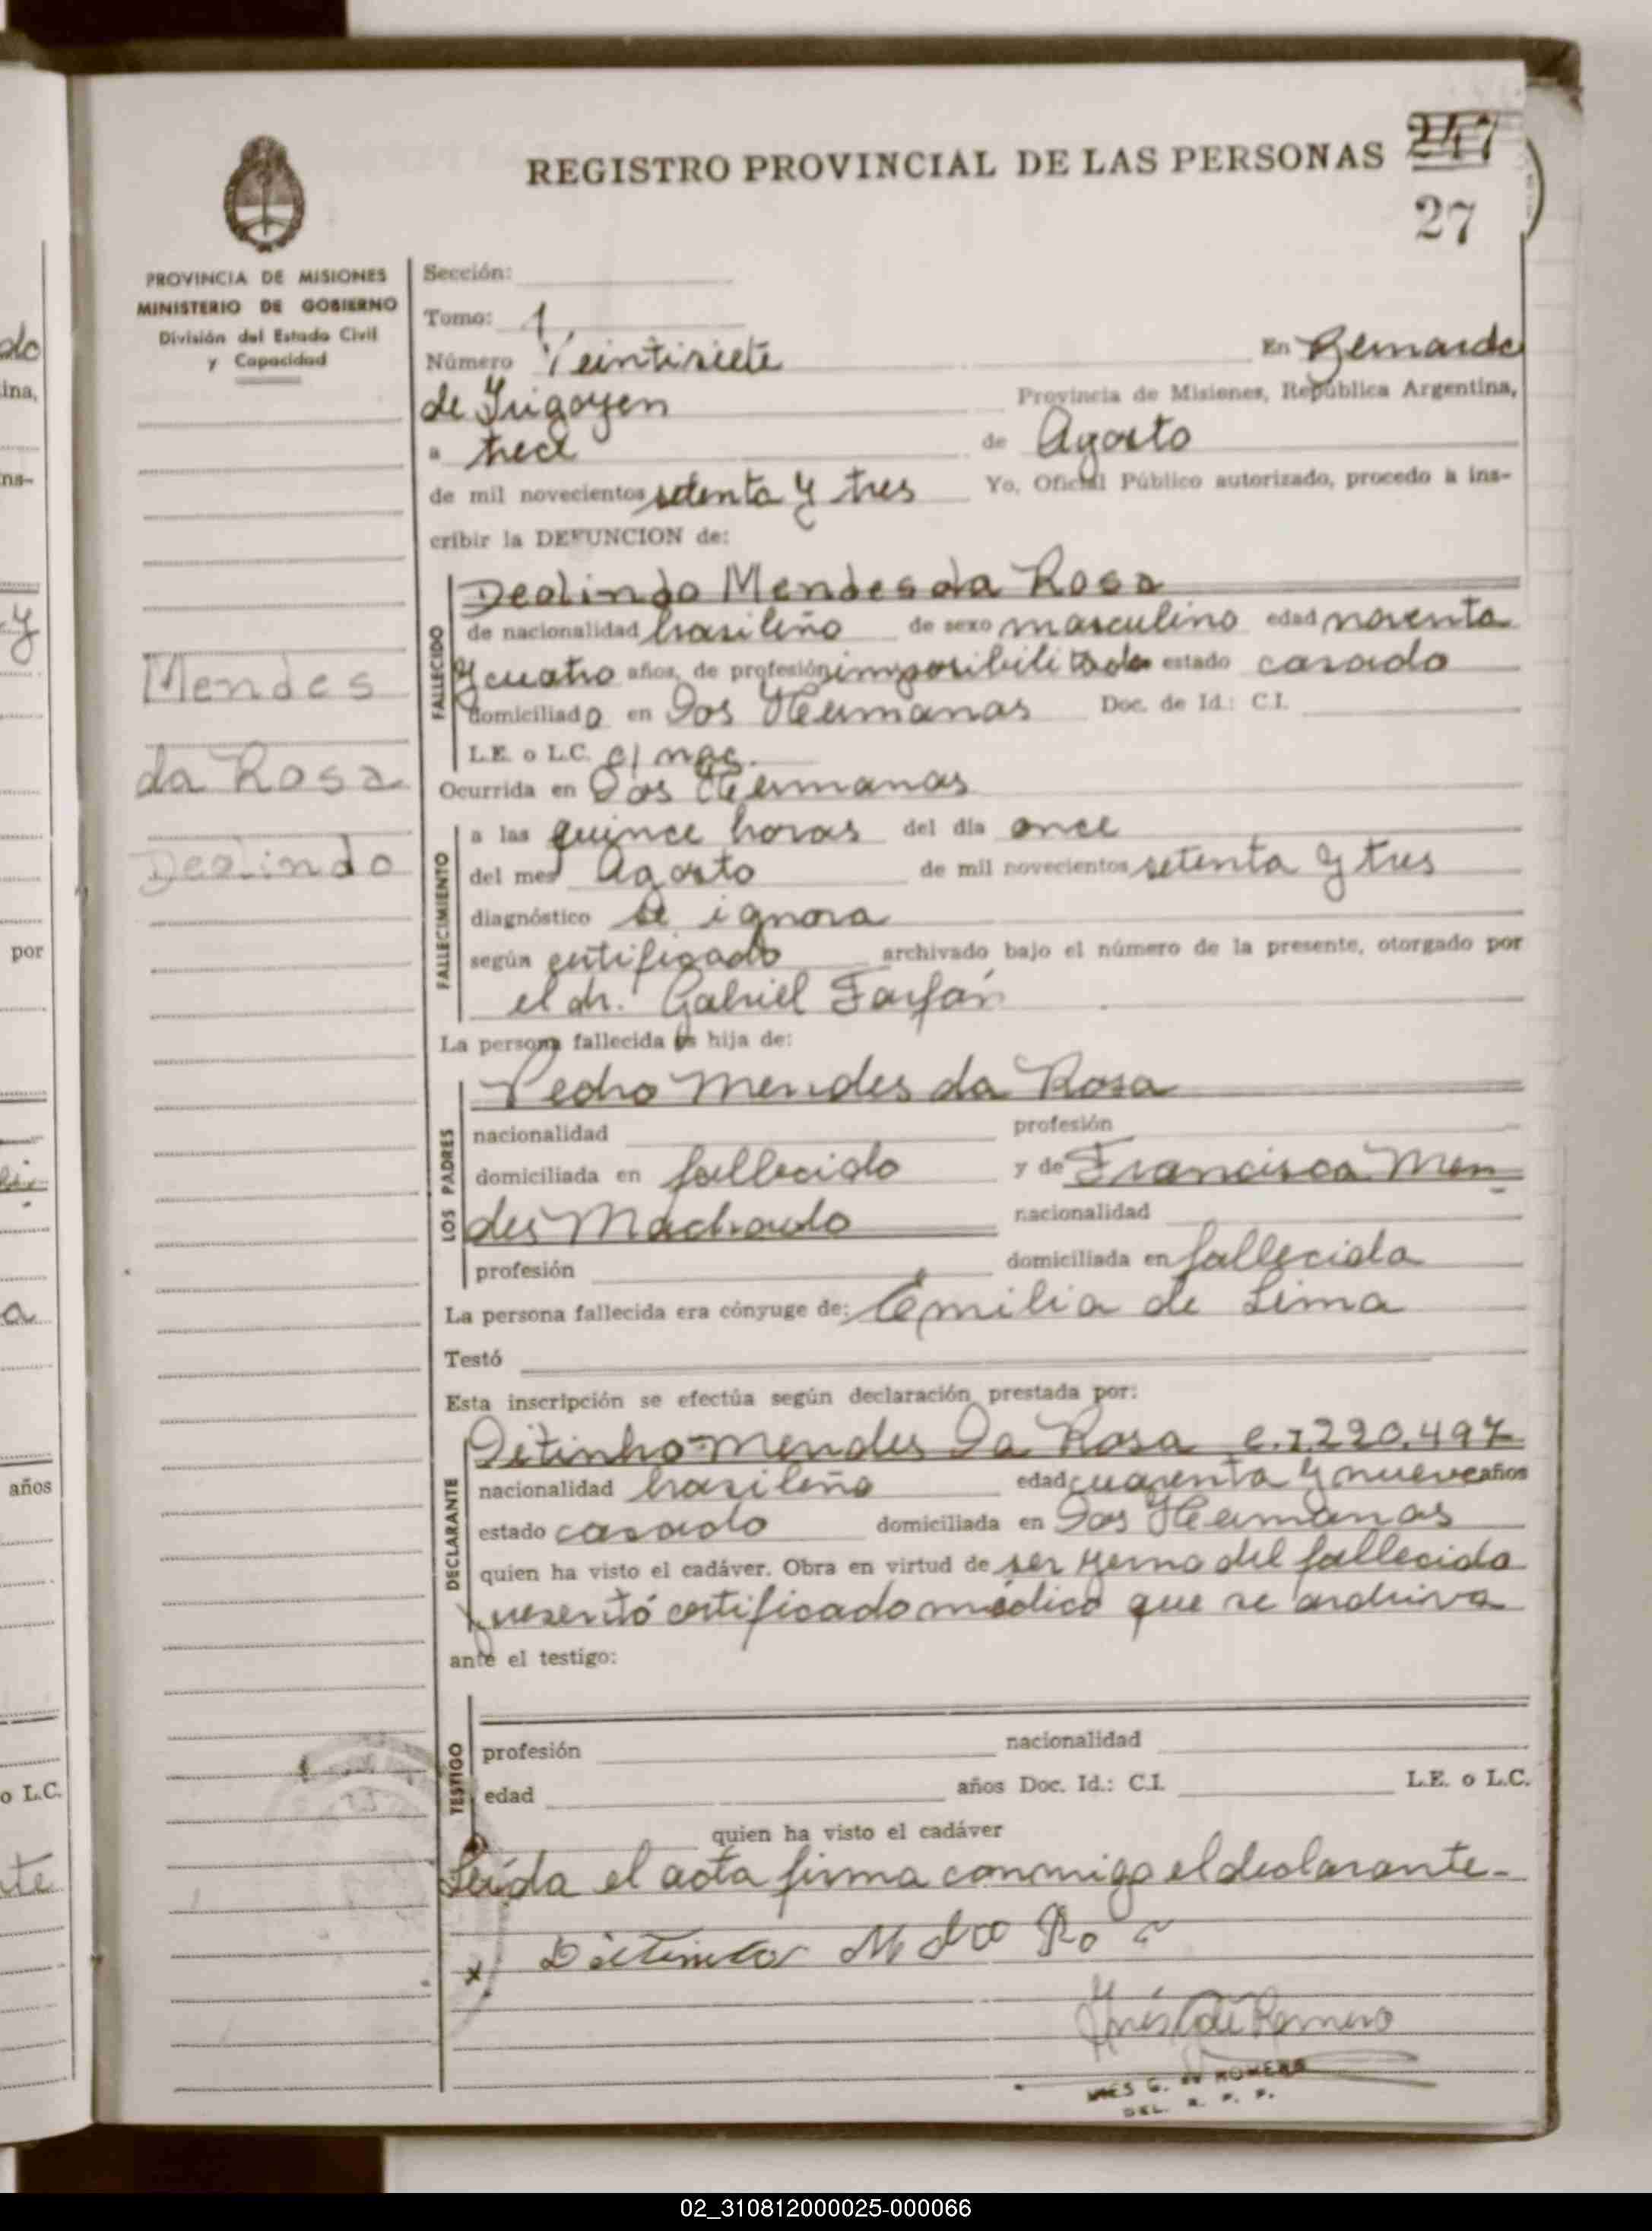 REGISTRO PROVINCIAL DE LAS PERSONAS 247
27
PROVINCIA DE MISIONES
MINISTERIO DE GOBIERNO
División del Estado Civil
y Capacidad
Mendes
da Rosa
Deolindo
Sección:
Tomo: 1
Número Veintisiete En Bernardo
de Irigoyen Provincia de Misiones, República Argentina,
a trece de Agosto
de mil novecientos setenta y tres Yo, Oficial Público autorizado, procedo a ins-
cribir la DEFUNCION de:
FALLECIDO
Deolindo Mendes da Rosa
de nacionalidad brasileño de sexo masculino edad noventa
y cuatro años, de profesión imposibilitado estado casado
domiciliado en Dos Hermanas Doc. de Id.: C.I.
L.E. o L.C.
Ocurrida en Dos Hermanas
FALLECIMIENTO
a las quince horas del día once
del mes Agosto de mil novecientos setenta y tres
diagnóstico se ignora
según certificado archivado bajo el número de la presente, otorgado por
el dr. Gabriel Farfán
La persona fallecida es hija de:
LOS PADRES
Pedro Mendes da Rosa
nacionalidad profesión
domiciliada en fallecido y de Francisca Men
des Machado nacionalidad
profesión domiciliada en fallecida
La persona fallecida era cónyuge de: Emilia de Lima
Testó
Esta inscripción se efectúa según declaración prestada por:
DECLARANTE
Ditinho Mendes Da Rosa 220.497
nacionalidad brasileño edad cuarenta y nueve años
estado casado domiciliada en Dos Hermanas
quien ha visto el cadáver. Obra en virtud de ser yerno del fallecido
presentó certificado médico que se archiva
ante el testigo:
TESTIGO
profesión nacionalidad
edad años Doc. Id.: C.I. L.E. o L.C.
quien ha visto el cadáver
Leída el acta firma conmigo el declarante.
INES G. de ROMERO
DEL. R. P. P.
do
ina,
ns-
y
por
a
años
o L.C.
te
02_310812000025-000066